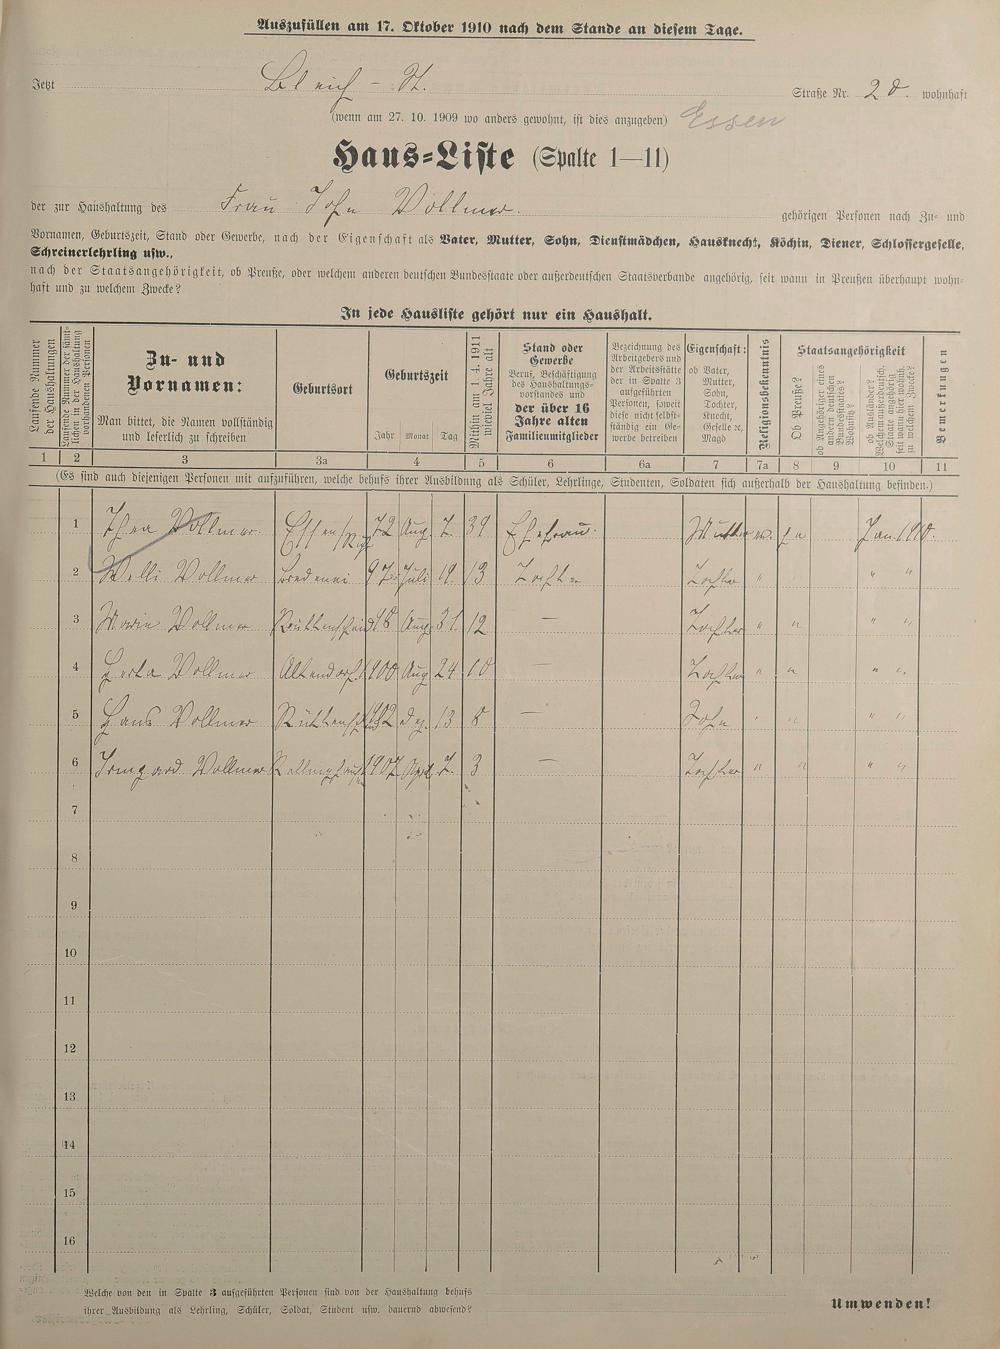 Auszufüllen am 17. Oktober 1910 nach dem Stande an diesem Tage.
Jetzt Bleich-St. Straße Nr. 20. wohnhaft
(wenn am 27. 10. 1909 wo anders gewohnt, ist dies anzugeben) Essen
Haus-Liste (Spalte 1—11)
der zur Haushaltung des Frau Joh Vollmer. gehörigen Personen nach Zu- und
Vornamen, Geburtszeit, Stand oder Gewerbe, nach der Eigenschaft als Vater, Mutter, Sohn, Dienstmädchen, Hausknecht, Köchin, Diener, Schlossergeselle,
Schreinerlehrling usw.,
nach der Staatsangehörigkeit, ob Preuße, oder welchem anderen deutschen Bundesstaate oder außerdeutschen Staatsverbande angehörig, seit wann in Preußen überhaupt wohn-
haft und zu welchem Zwecke?
In jede Hausliste gehört nur ein Haushalt.
Laufende Nummer
der Haushaltungen
Laufende Nummer der sämt-
lichen in der Haushaltung
vorhandenen Personen
Zu- und
Vornamen:
Man bittet, die Namen vollständig
und leserlich zu schreiben
Geburtsort
Geburtszeit
Jahr Monat Tag
Mithin am 1. 4. 1911
wieviel Jahre alt
Stand oder
Gewerbe
Beruf, Beschäftigung
des Haushaltungs-
vorstandes und
der über 16
Jahre alten
Familienmitglieder
Bezeichnung des
Arbeitgebers und
der Arbeitsstätte
der in Spalte 3
aufgeführten
Personen, soweit
diese nicht selbst-
ständig ein Ge-
werbe betreiben
Eigenschaft:
ob Vater,
Mutter,
Sohn,
Tochter,
Knecht,
Geselle ec,
Magd
Religionsbekenntnis
Staatsangehörigkeit
Ob Preuße?
ob Angehöriger eines
andern deutschen
Bundesstaates?
Wohnsitz?
ob Ausländer?
Welchem außerdeutsch.
Staate angehörig
seit wann hier wohnh.
zu welchem Zwecke?
Bemerkungen
1 2 3 3a 4 5 6 6a 7 7a 8 9 10 11
(Es sind auch diejenigen Personen mit aufzuführen, welche behufs ihrer Ausbildung als Schüler, Lehrlinge, Studenten, Soldaten sich außerhalb der Haushaltung befinden.)
1 Thea Vollmer Essen/Ruhr 72 Aug. 7. 39 Ehefrau. Mutter Jan 1910.
2 Vollmer Bredenei 97 Juli 19. 13 Tochter Tochter " " "
3 Maria Vollmer Rüttenscheid 98 Aug. 31 12 — Tochter " " " "
4 Herta Vollmer Altendorf 1900 Aug 24 10 — Tochter " " " "
5 Hans Vollmer 1902 dez. 13 8 — Sohn " " " "
6 Irmgard Vollmer 1907 April 7. 3 — Tochter " " " "
7
8
9
10
11
12
13
14
15
16
Welche von den in Spalte 3 aufgeführten Personen sind von der Haushaltung behufs
ihrer Ausbildung als Lehrling, Schüler, Soldat, Student usw. dauernd abwesend?
Umwenden!